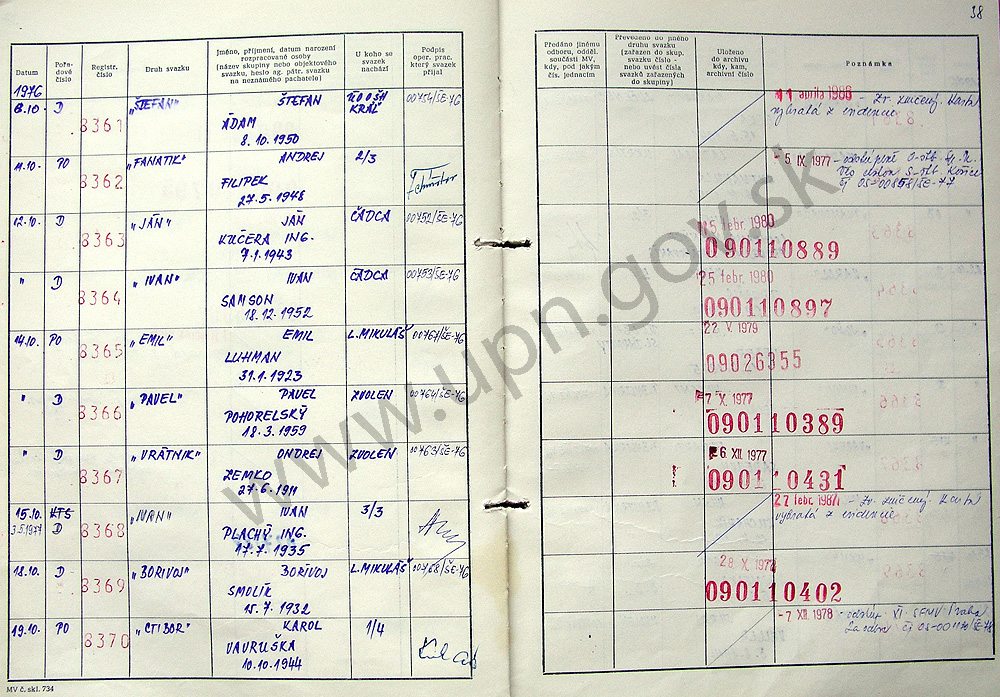 38
Datum
Pořa-
dové
číslo
Registr.
číslo
Druh svazku
Jméno, příjmení, datum narození
rozpracované osoby
(název skupiny nebo objektového
svazku, heslo ag. pátr. svazku
na neznámého pachatele)
U koho se
svazek
nachází
Podpis
oper. prac.
který svazek
přijal
Předáno jinému
odboru, odděl.
součásti MV,
kdy, pod jakým
čís. jednacím
Převezeno do jiného
druhu svazku
(zařazen do skup.
svazku číslo -
nebo uvést čísla
svazků zařazených
do skupiny)
Uloženo
do archivu
kdy, kam,
archivní číslo
Poznámka
1976
8.10. D 8361 „ŠTEFAN" ŠTEFAN
ADAM
8.10.1950
KRÁĽ
00754/ŠE-76
11 apríla 1986 - Zv. zničený. Karta
vybratá z evidencie
11.10. PO 8362 „FANATIK" ANDREJ 2/3
FILIPEK
27.5.1948
- 5 IX. 1977
ČJ OS-00858/ŠE-77
12.10. D 8363 „JÁN" JÁN ČADCA 00752/ŠE-76
KUČERA ING.
7.1.1943
25 febr. 1980
090110889
" D 8364 „IVAN" IVAN ČADCA 00753/ŠE-76
SAMSON
18.12.1952
25 febr. 1980
090110897
14.10. PO 8365 „EMIL" EMIL L.MIKULÁŠ 00767/ŠE-76
LUHMAN
31.1.1923
22 V. 1979
09026355
" D 8366 „PAVEL" PAVEL ZVOLEN 00764/ŠE-76
POHORELSKÝ
18.3.1959
7 X. 1977
090110389
" D 8367 „VRÁTNIK" ONDREJ ZVOLEN 00763/ŠE-76
ZEMKO
27.6.1911
6 XII. 1977
090110431
15.10. KTS 8368 „IVAN" IVAN 3/3
3.5.1977 D
PLACHÝ ING.
17.7.1935
27 febr. 1987 - Zv. zničený Karta
vybratá z evidencie
18.10. D 8369 „BORIVOJ" BORIVOJ L.MIKULÁŠ 00768/ŠE-76
SMOLÍK
15.7.1932
28 X. 1977
090110402
19.10. PO 8370 „CTIBOR" KAROL 1/4
VAVRUŠKA
10.10.1944
- 7 XII. 1978
MV č. skl. 734
www.upn.gov.sk